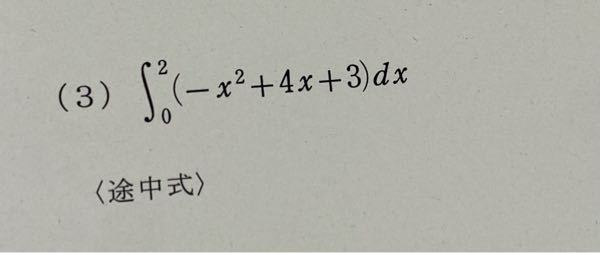 (3) ∫₀²(−x²+4x+3)dx
〈途中式〉